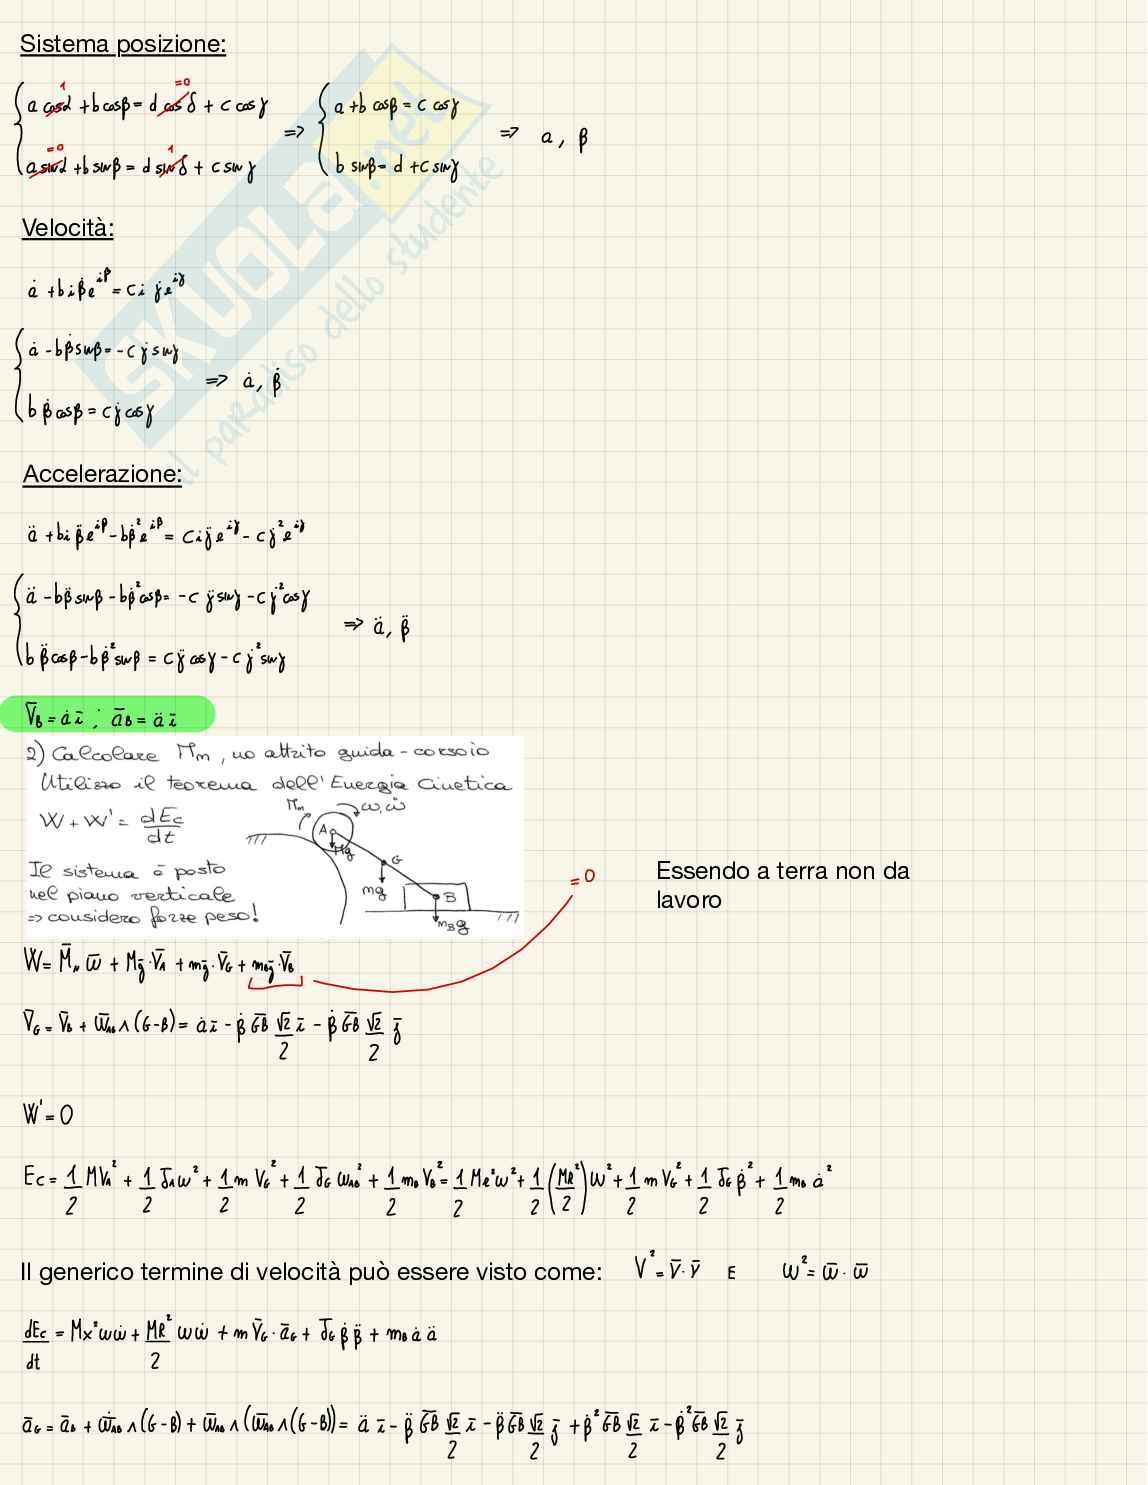 Sistema posizione:
a cosα + b cosβ = d cosδ + c cosγ ⇒ a + b cosβ = c cosγ ⇒ a, β
1 =0
a sinα + b sinβ = d sinδ + c sinγ b sinβ = d + c sinγ
=0 1
Velocità:
ȧ + b i β̇ e^{iβ} = c i γ̇ e^{iγ}
ȧ - b β̇ sinβ = -c γ̇ sinγ
⇒ ȧ, β̇
b β̇ cosβ = c γ̇ cosγ
Accelerazione:
ä + b i β̈ e^{iβ} - b β̇² e^{iβ} = c i γ̈ e^{iγ} - c γ̇² e^{iγ}
ä - b β̈ sinβ - b β̇² cosβ = -c γ̈ sinγ - c γ̇² cosγ
⇒ ä, β̈
b β̈ cosβ - b β̇² sinβ = c γ̈ cosγ - c γ̇² sinγ
V̄_B = ȧ ī ; ā_B = ä ī
2) Calcolare M_m, no attrito guida-corsoio
Utilizzo il teorema dell'Energia Cinetica
W + W' = dEc/dt
M_m ω, ω̇
A Mg G mg B m_B g
Il sistema è posto
nel piano verticale
⇒ considero forze peso!
=0
Essendo a terra non da
lavoro
W = M̄_m ω̄ + M ḡ · V̄_A + m ḡ · V̄_G + m_B ḡ · V̄_B
V̄_G = V̄_B + ω̄_AB ∧ (G-B) = ȧ ī - β̇ GB √2/2 ī - β̇ GB √2/2 j̄
W' = 0
Ec = 1/2 M V_A² + 1/2 J_A ω² + 1/2 m V_G² + 1/2 J_G ω_AB² + 1/2 m_B V_B² = 1/2 M e² ω² + 1/2 (MR²/2) ω² + 1/2 m V_G² + 1/2 J_G β̇² + 1/2 m_B ȧ²
Il generico termine di velocità può essere visto come: V² = V̄ · V̄ E ω² = ω̄ · ω̄
dEc/dt = M x² ω ω̇ + MR²/2 ω ω̇ + m V̄_G · ā_G + J_G β̇ β̈ + m_B ȧ ä
ā_G = ā_B + ω̄̇_AB ∧ (G-B) + ω̄_AB ∧ (ω̄_AB ∧ (G-B)) = ä ī - β̈ GB √2/2 ī - β̈ GB √2/2 j̄ + β̇² GB √2/2 ī - β̇² GB √2/2 j̄
SKUOLA.net
il paradiso dello studente